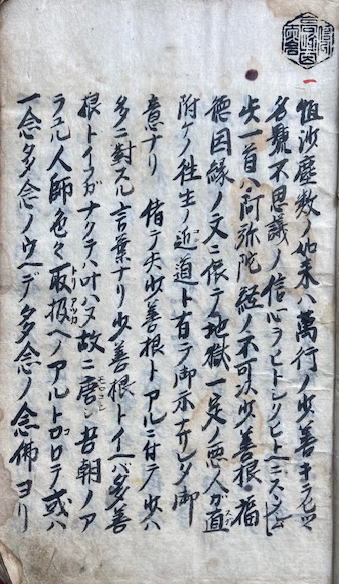 恒沙塵数ノ如来ハ萬行ノ少善キラヒツヽ
名號不思議ノ信心ヲヒトシクヒトヘニスヽム
此一首ハ阿弥陀経ノ不可以少善根福
徳因縁ノ文ニ依テ地獄一定ノ悪人ガ直
附ケノ往生ノ近道ト有テ御示ナサレタ御
意ナリ 偖テ夫少善根トアルニ付テ少ハ
多ニ對スル言葉ナリ少善根トイヘバ多善
根トイフガナクテハ叶ハヌ故ニ唐シ吾朝ノア
ラユル人師色々取扱ヘノアルトコロテ或ハ
一念多念ノウヘデ多念ノ念佛ヨリ